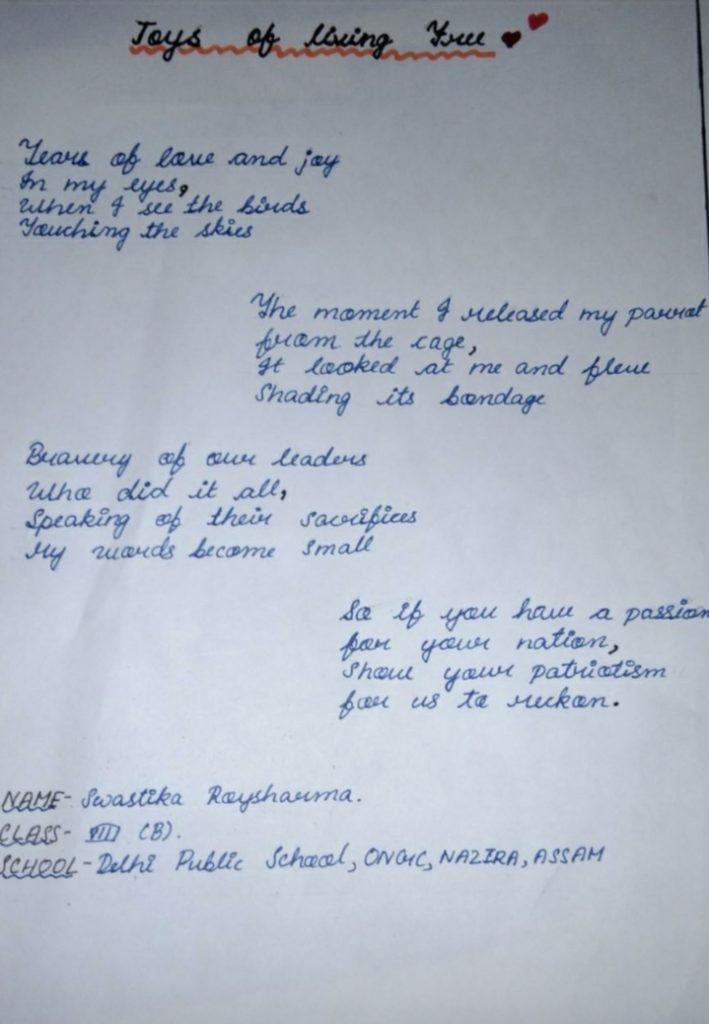 Joys of living Free
Tears of love and joy
In my eyes,
When I see the birds
Touching the skies
The moment I released my parrot
from the cage,
It looked at me and flew
Shading its bondage
Bravery of our leaders
Who did it all,
Speaking of their sacrifices
My words become small
So if you have a passion
for your nation,
Show your patriotism
for us to reckon.
NAME- Swastika Roysharma.
CLASS- VIII (B).
SCHOOL- Delhi Public School, ONGC, NAZIRA, ASSAM